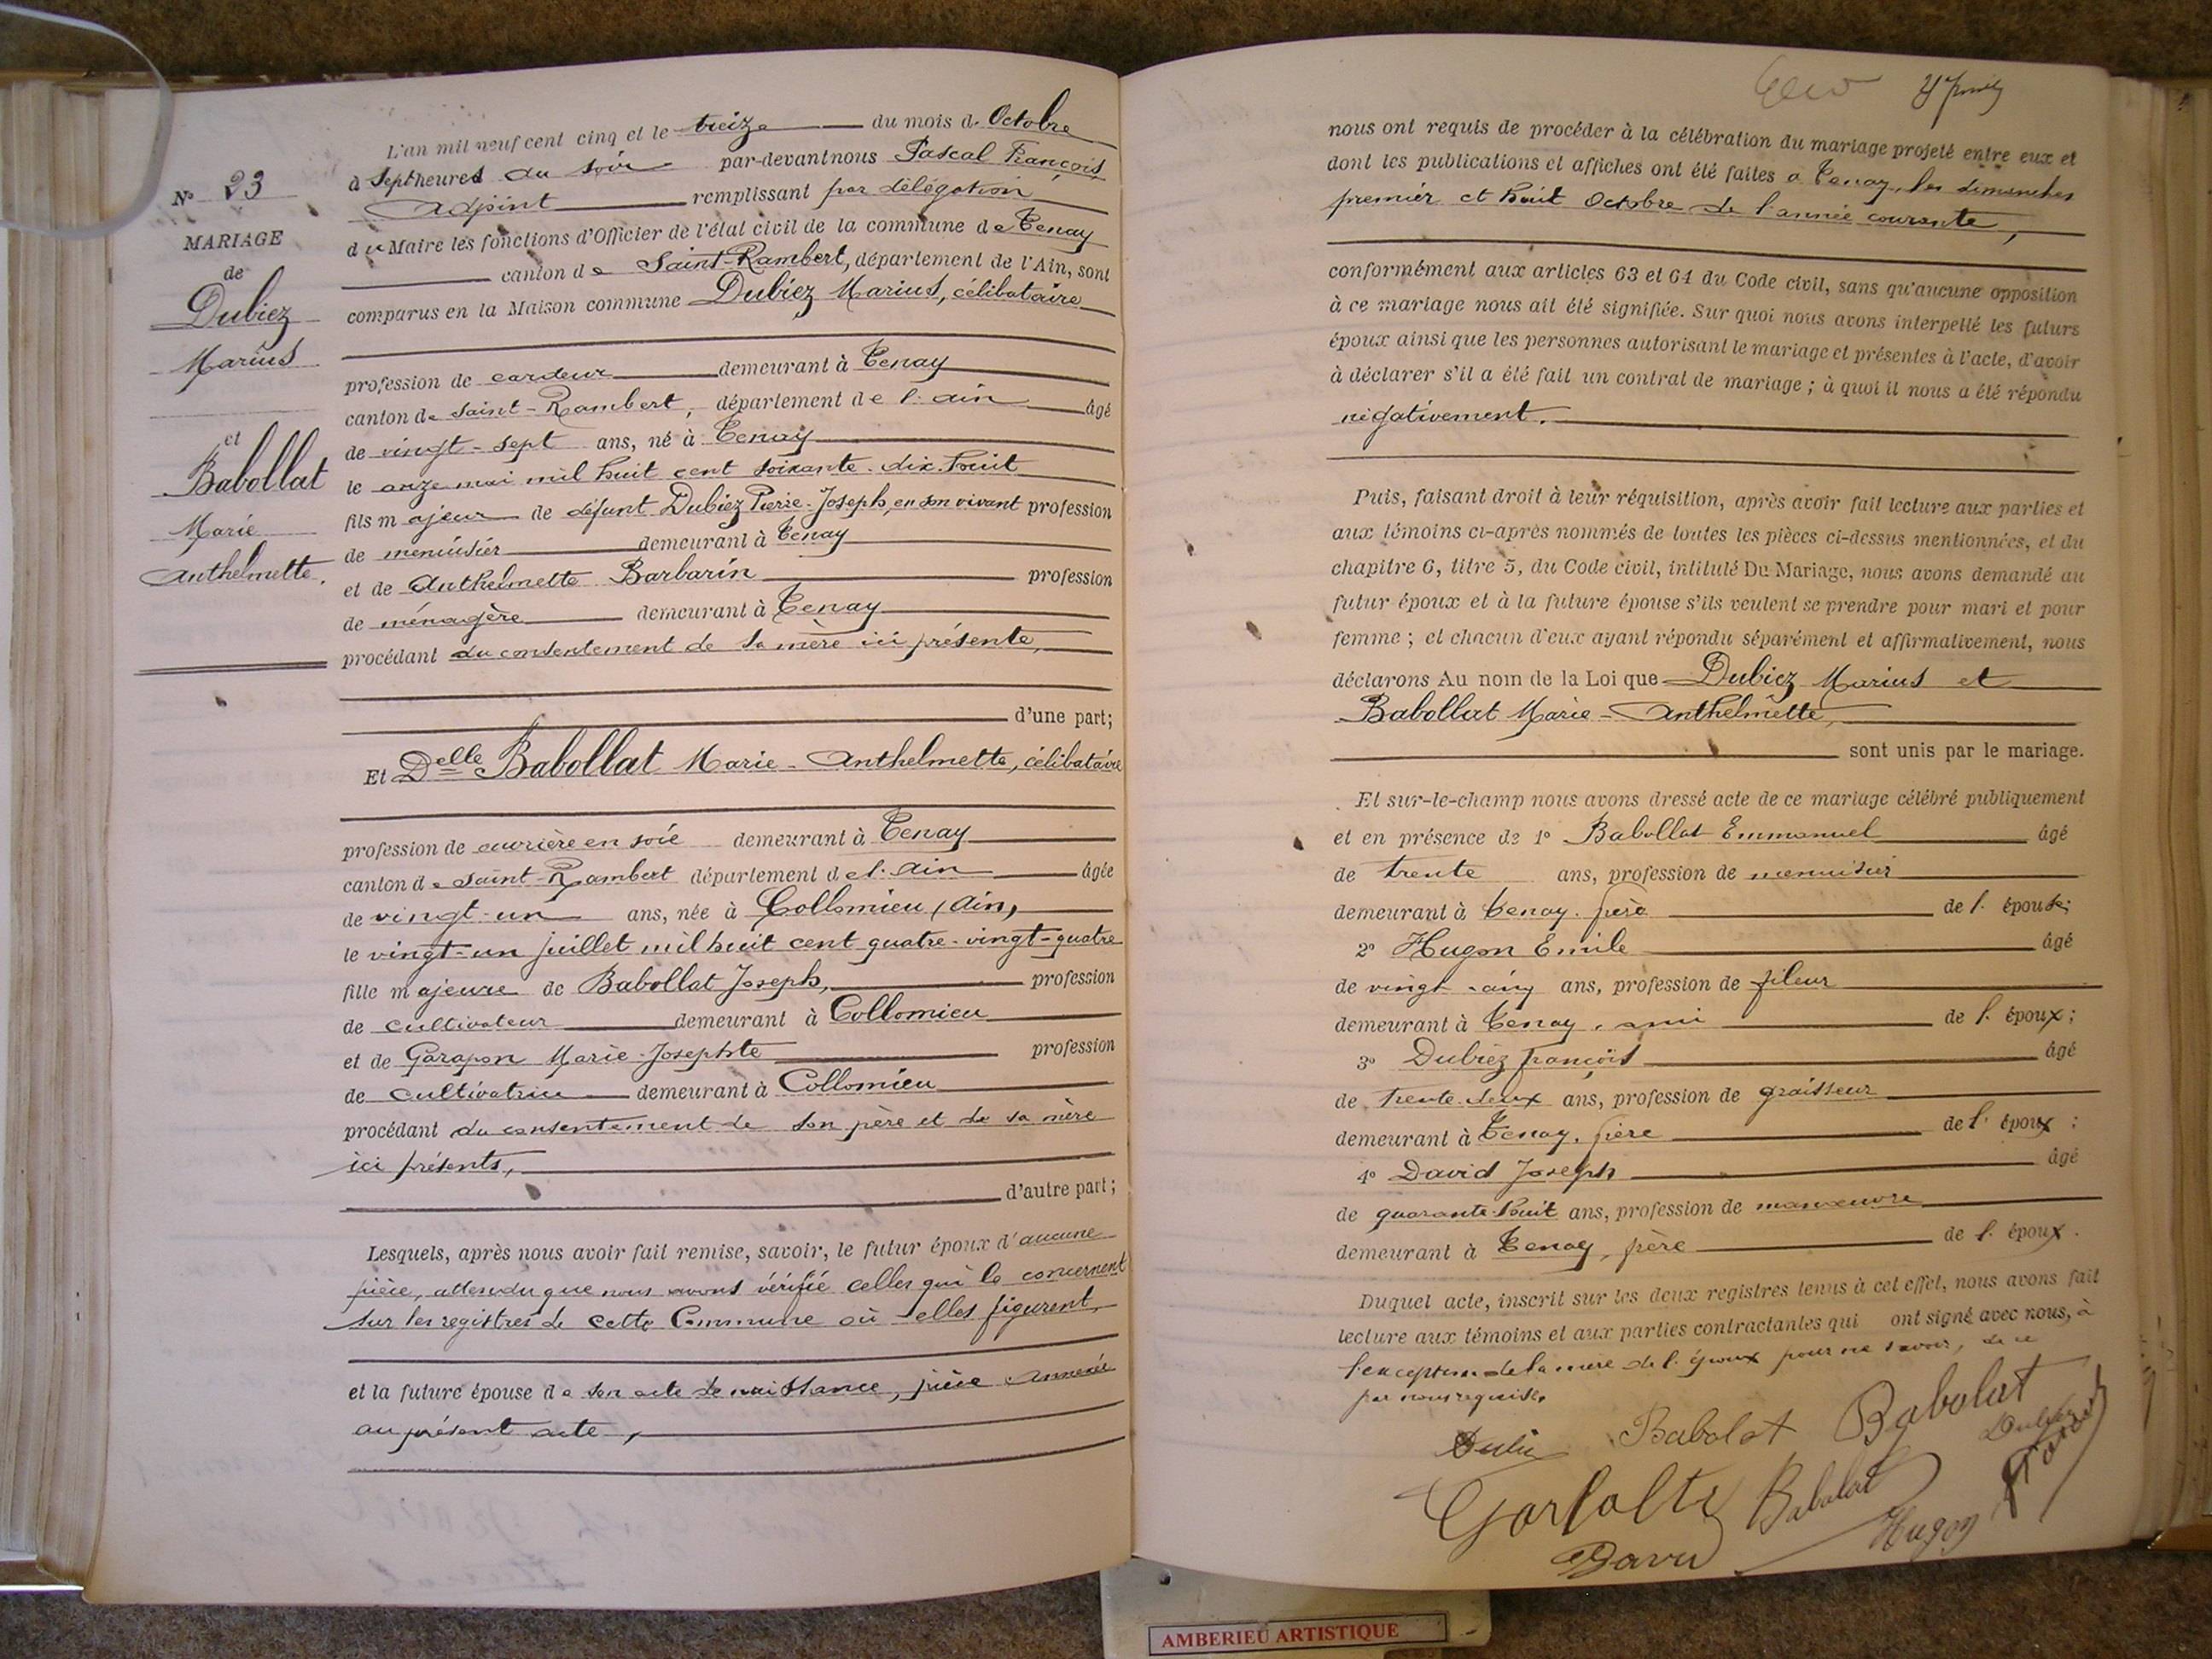 N° 23
MARIAGE
de
Dubiez
Marius
et
Babollat
Marie
Anthelmette.
L'an mil neuf cent cinq et le treize du mois d. Octobre
à Sept heures du soir par-devant nous Pascal François
Adjoint remplissant par délégation
du Maire les fonctions d'Officier de l'état civil de la commune de Tenay
canton de Saint-Rambert, département de l'Ain, sont
comparus en la Maison commune Dubiez Marius, célibataire
profession de cardeur demeurant à Tenay
canton de Saint-Rambert, département de l'ain âgé
de vingt-sept ans, né à Tenay
le onze mai mil huit cent soixante-dix-huit
fils majeur de défunt Dubiez Pierre-Joseph, en son vivant profession
de menuisier demeurant à Tenay
et de Anthelmette Barbarin profession
de ménagère demeurant à Tenay
procédant du consentement de sa mère ici présente,
d'une part;
Et Delle Babollat Marie-Anthelmette, célibataire
profession de ouvrière en soie demeurant à Tenay
canton de Saint-Rambert département de l'Ain âgée
de vingt-un ans, née à Collomieu (Ain)
le vingt-un juillet mil huit cent quatre-vingt-quatre
fille majeure de Babollat Joseph, profession
de cultivateur demeurant à Collomieu
et de Garapon Marie-Josephte profession
de cultivatrice demeurant à Collomieu
procédant du consentement de son père et de sa mère
ici présents,
d'autre part;
Lesquels, après nous avoir fait remise, savoir, le futur époux d'aucune
pièce, attendu que nous avons vérifié celles qui le concernent
sur les registres de cette Commune où elles figurent,
et la future épouse de son acte de naissance, pièce annexée
au présent acte,
nous ont requis de procéder à la célébration du mariage projeté entre eux et
dont les publications et affiches ont été faites à Tenay, les dimanches
premier et huit Octobre de l'année courante,
conformément aux articles 63 et 64 du Code civil, sans qu'aucune opposition
à ce mariage nous ait été signifiée. Sur quoi nous avons interpellé les futurs
époux ainsi que les personnes autorisant le mariage et présentes à l'acte, d'avoir
à déclarer s'il a été fait un contrat de mariage ; à quoi il nous a été répondu
négativement.
Puis, faisant droit à leur réquisition, après avoir fait lecture aux parties et
aux témoins ci-après nommés de toutes les pièces ci-dessus mentionnées, et du
chapitre 6, titre 5, du Code civil, intitulé Du Mariage, nous avons demandé au
futur époux et à la future épouse s'ils veulent se prendre pour mari et pour
femme ; et chacun d'eux ayant répondu séparément et affirmativement, nous
déclarons Au nom de la Loi que Dubiez Marius et
Babollat Marie-Anthelmette,
sont unis par le mariage.
Et sur-le-champ nous avons dressé acte de ce mariage célébré publiquement
et en présence de 1° Babollat Emmanuel âgé
de trente ans, profession de menuisier
demeurant à Tenay. frère de l'épouse;
2° Hugon Emile âgé
de vingt-cinq ans, profession de fileur
demeurant à Tenay, ami de l'époux;
3° Dubiez françois âgé
de trente-deux ans, profession de graisseur
demeurant à Tenay, frère de l'époux ;
4° David Joseph âgé
de quarante-huit ans, profession de manœuvre
demeurant à Tenay, père de l'époux.
Duquel acte, inscrit sur les deux registres tenus à cet effet, nous avons fait
lecture aux témoins et aux parties contractantes qui ont signé avec nous, à
l'exception de la mère de l'époux pour ne savoir, de ce
par nous requise.
Babolat Babolat Dubiez
Babolat Hugon
AMBERIEU ARTISTIQUE